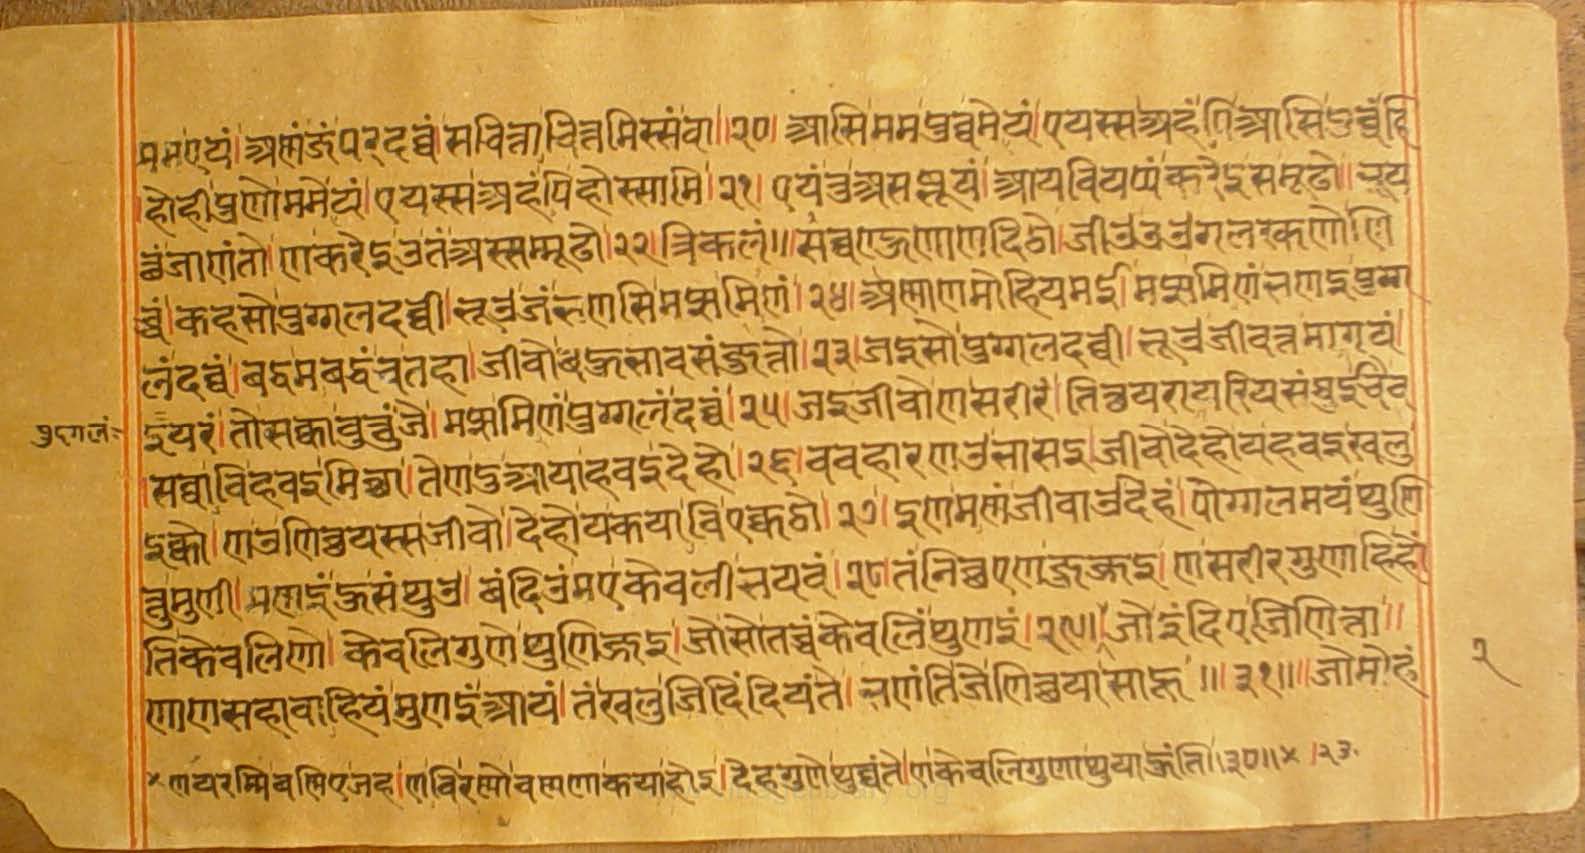 ममएयं। अणंजंपरदव्वं। सचित्ताचित्तमिस्संवा।।२०। आसिममपुव्वमेयं। एयस्सअहंपिआसिपुव्वंहि
।होहीपुणोममेयं। एयस्सअहंपिहोस्सामि।२१। एयंतुअसब्भूयं। आयवियप्पंकरेइसमूढो। भूय
त्थंजाणंतो। णकरेइउतंअस्सम्मूढो।२२। त्रिकलं॥ सव्वण्हुणाणदिठो। जीउउवउगलरकणोणि
च्चं। कहसोपुग्गलदव्वी। भूउजंभणसिमझमिणं।२४। अणाणमोहियमई। मझमिणंभणइपुग्ग
लंदव्वं। बद्धमबद्धंचतहा। जीवोबहुभावसंजुत्तो।२३। जइसोपुग्गलदव्वी। भूउजीवत्तमागयं
इयरं। तोसक्कावुत्तुंजे। मझमिणंपुग्गलंदव्वं।२५। जइजीवोणसरीरं। तित्थयरायरियसंथुईचेव
।सव्वाविहवइमिच्छा। तेणदुआयाहवइदेहो।२६। ववहारणउभासइ। जीवोदेहोयहवइखलु
इक्को। णउणिच्छयस्सजीवो। देहोयकयाविएक्कठो।२७। इणमणंजीवाउदेहं। पोग्गलमयंथुणि
त्तुमुणी। मणइहुसंथुउ। वंदिउमएकेवलीभयवं।२८। तंनिच्छएणजुज्जइ। णसरीरगुणाहिहों
तिकेवलिणो। केवलिगुणेथुणिज्जइ। जोसोतच्चंकेवलिंथुणइ।२९।× जोइंदिएजिणित्ता॥
णाणसहावाहियंमुणइआयं। तंखलुजिदिंदियंते। भणंतिजेणिच्छयासाहू॥३१॥ जोमोहं
×णयरम्मिवणिएजह। णविरणोवणणाकयाहोइ। देहगुणेथुव्वंते। णकेवलिगुणाथुयाहुंति।३०॥× ।२३.
पुग्गलं॰
२